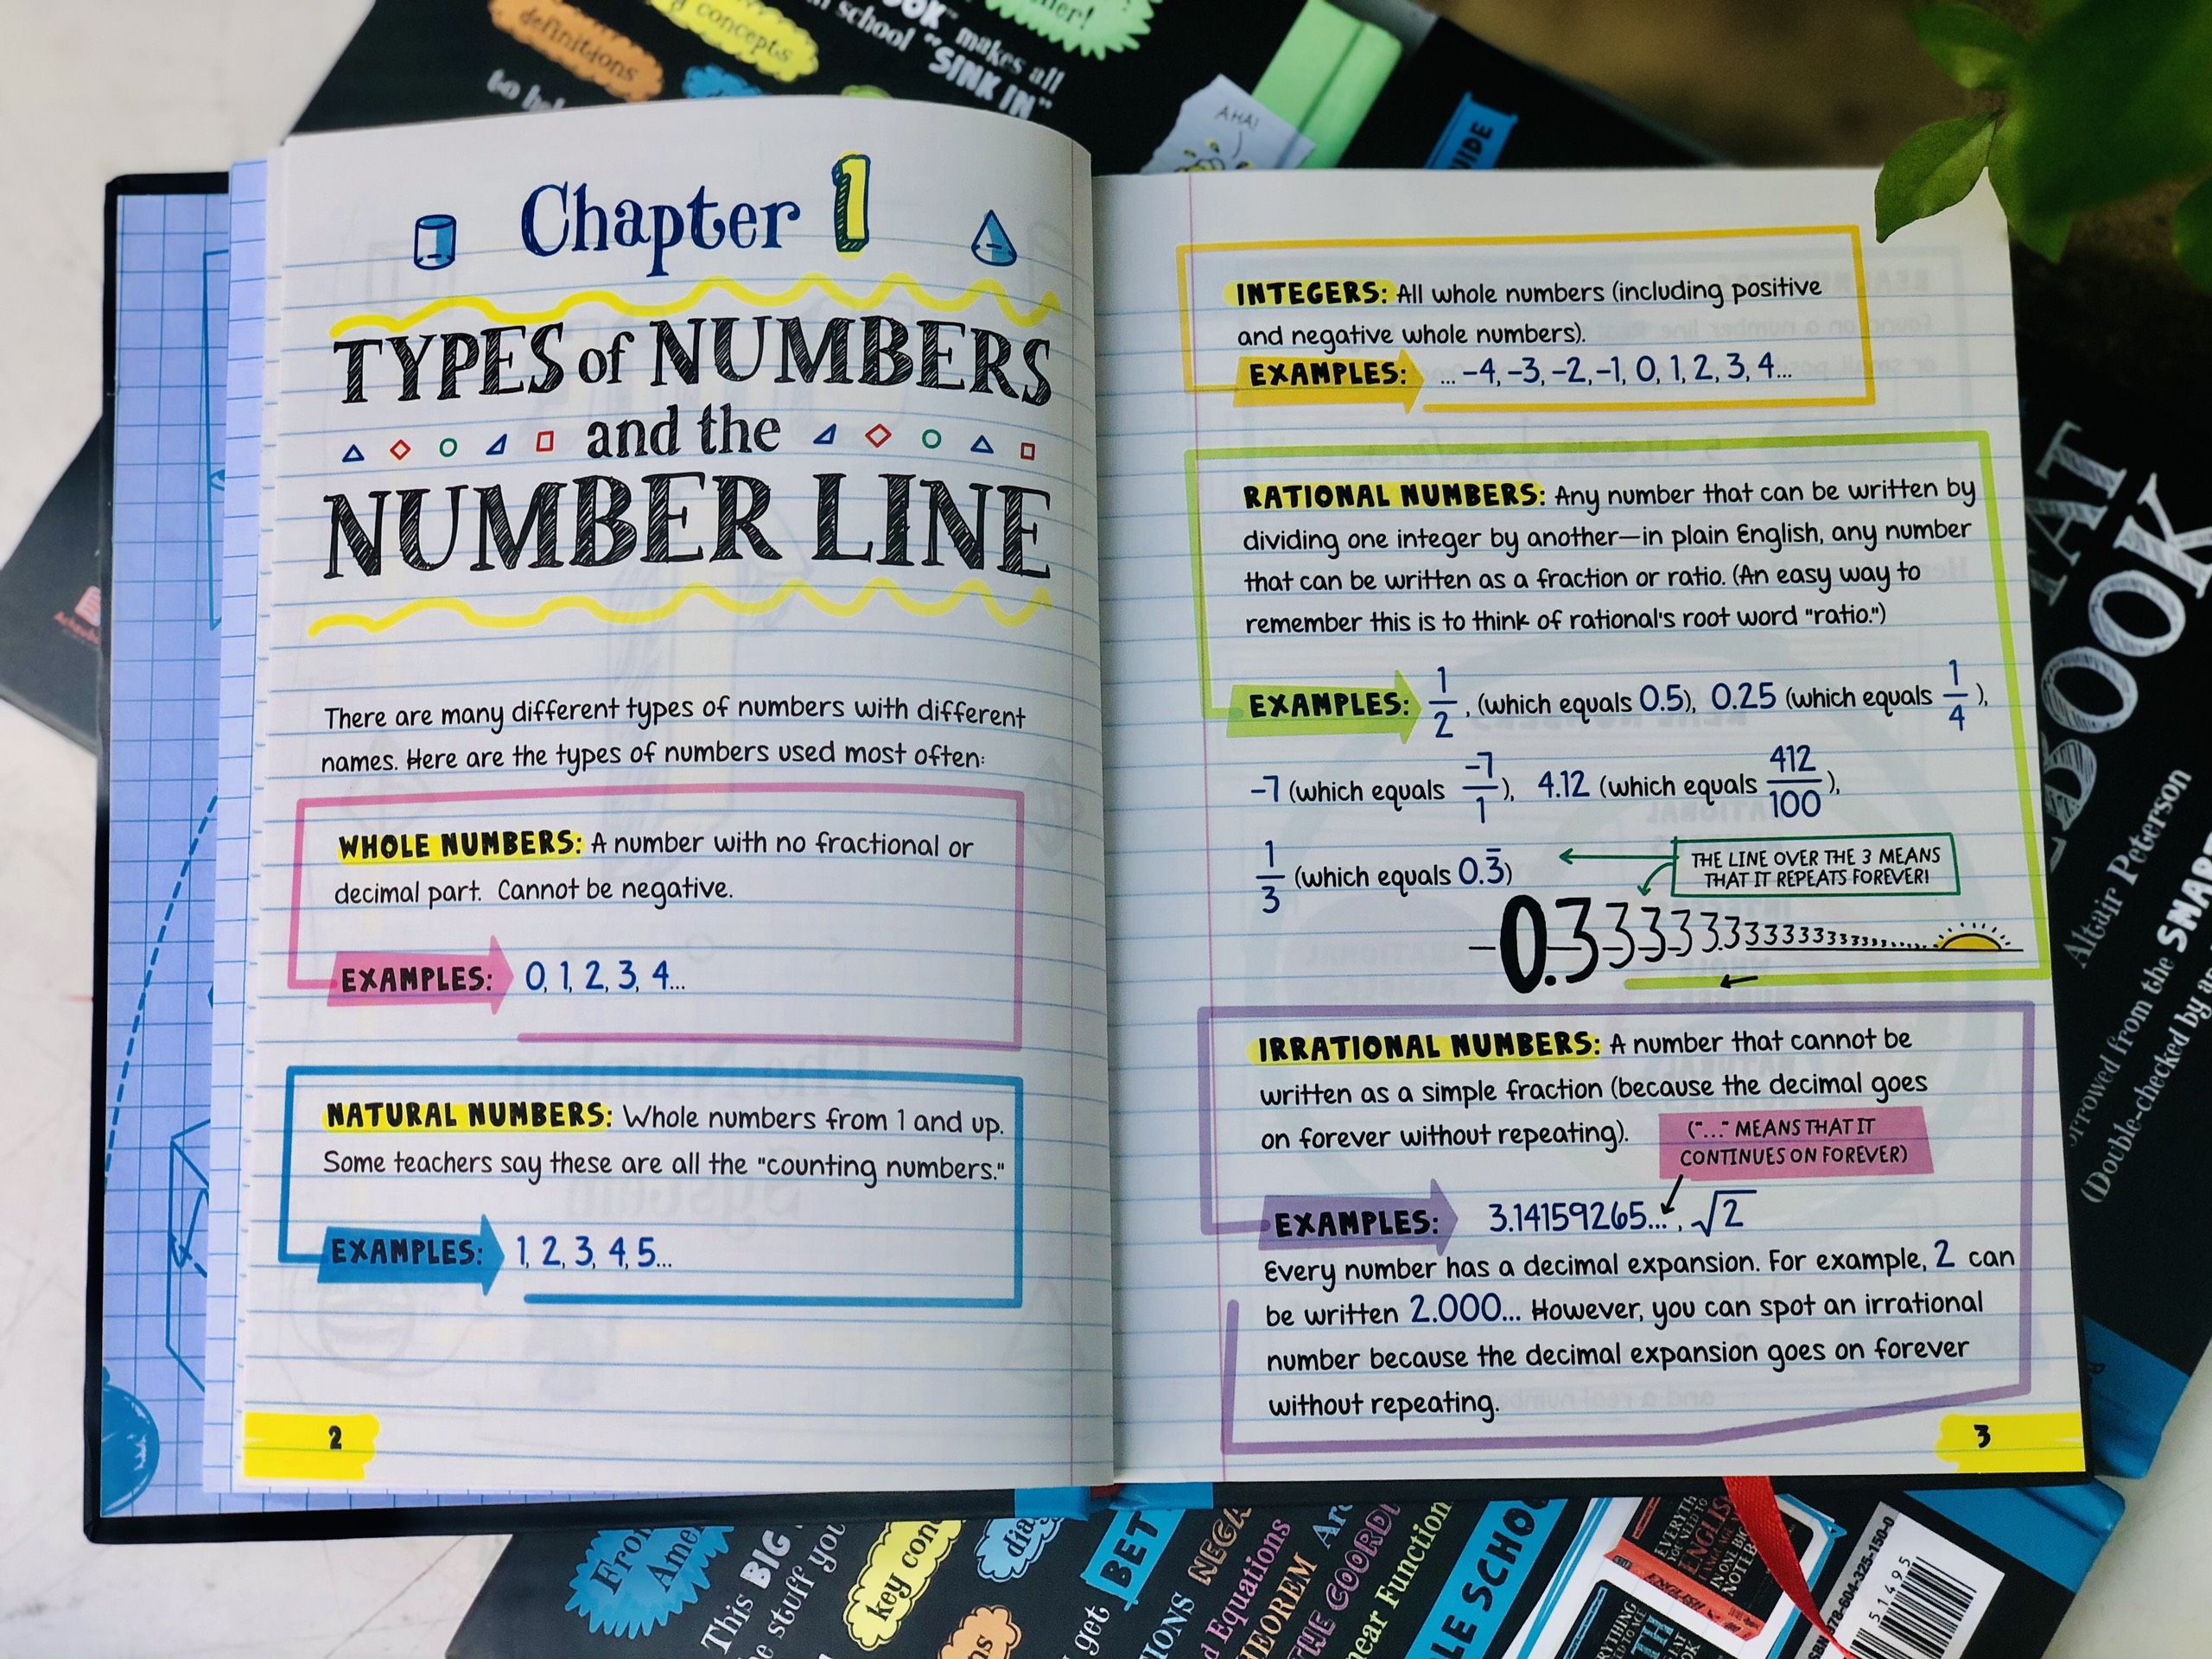 definitions
concepts
makes all
school "SINK IN"
AHA!
Chapter 1
TYPES of NUMBERS
and the
NUMBER LINE
There are many different types of numbers with different
names. Here are the types of numbers used most often:
WHOLE NUMBERS: A number with no fractional or
decimal part. Cannot be negative.
EXAMPLES: 0, 1, 2, 3, 4...
NATURAL NUMBERS: Whole numbers from 1 and up.
Some teachers say these are all the "counting numbers."
EXAMPLES: 1, 2, 3, 4, 5...
2
INTEGERS: All whole numbers (including positive
and negative whole numbers).
EXAMPLES: ... -4, -3, -2, -1, 0, 1, 2, 3, 4...
RATIONAL NUMBERS: Any number that can be written by
dividing one integer by another—in plain English, any number
that can be written as a fraction or ratio. (An easy way to
remember this is to think of rational's root word "ratio.")
EXAMPLES: 1/2, (which equals 0.5), 0.25 (which equals 1/4),
-7 (which equals -7/1), 4.12 (which equals 412/100),
1/3 (which equals 0.3̅)
THE LINE OVER THE 3 MEANS
THAT IT REPEATS FOREVER!
0.333333333333333333......
IRRATIONAL NUMBERS: A number that cannot be
written as a simple fraction (because the decimal goes
on forever without repeating).
("..." MEANS THAT IT
CONTINUES ON FOREVER)
EXAMPLES: 3.14159265..., √2
Every number has a decimal expansion. For example, 2 can
be written 2.000... However, you can spot an irrational
number because the decimal expansion goes on forever
without repeating.
3
Altair Peterson
from the
(Double-checked by
This BIG
stuff you
key
get
Equations
THE
SCHOO
51495